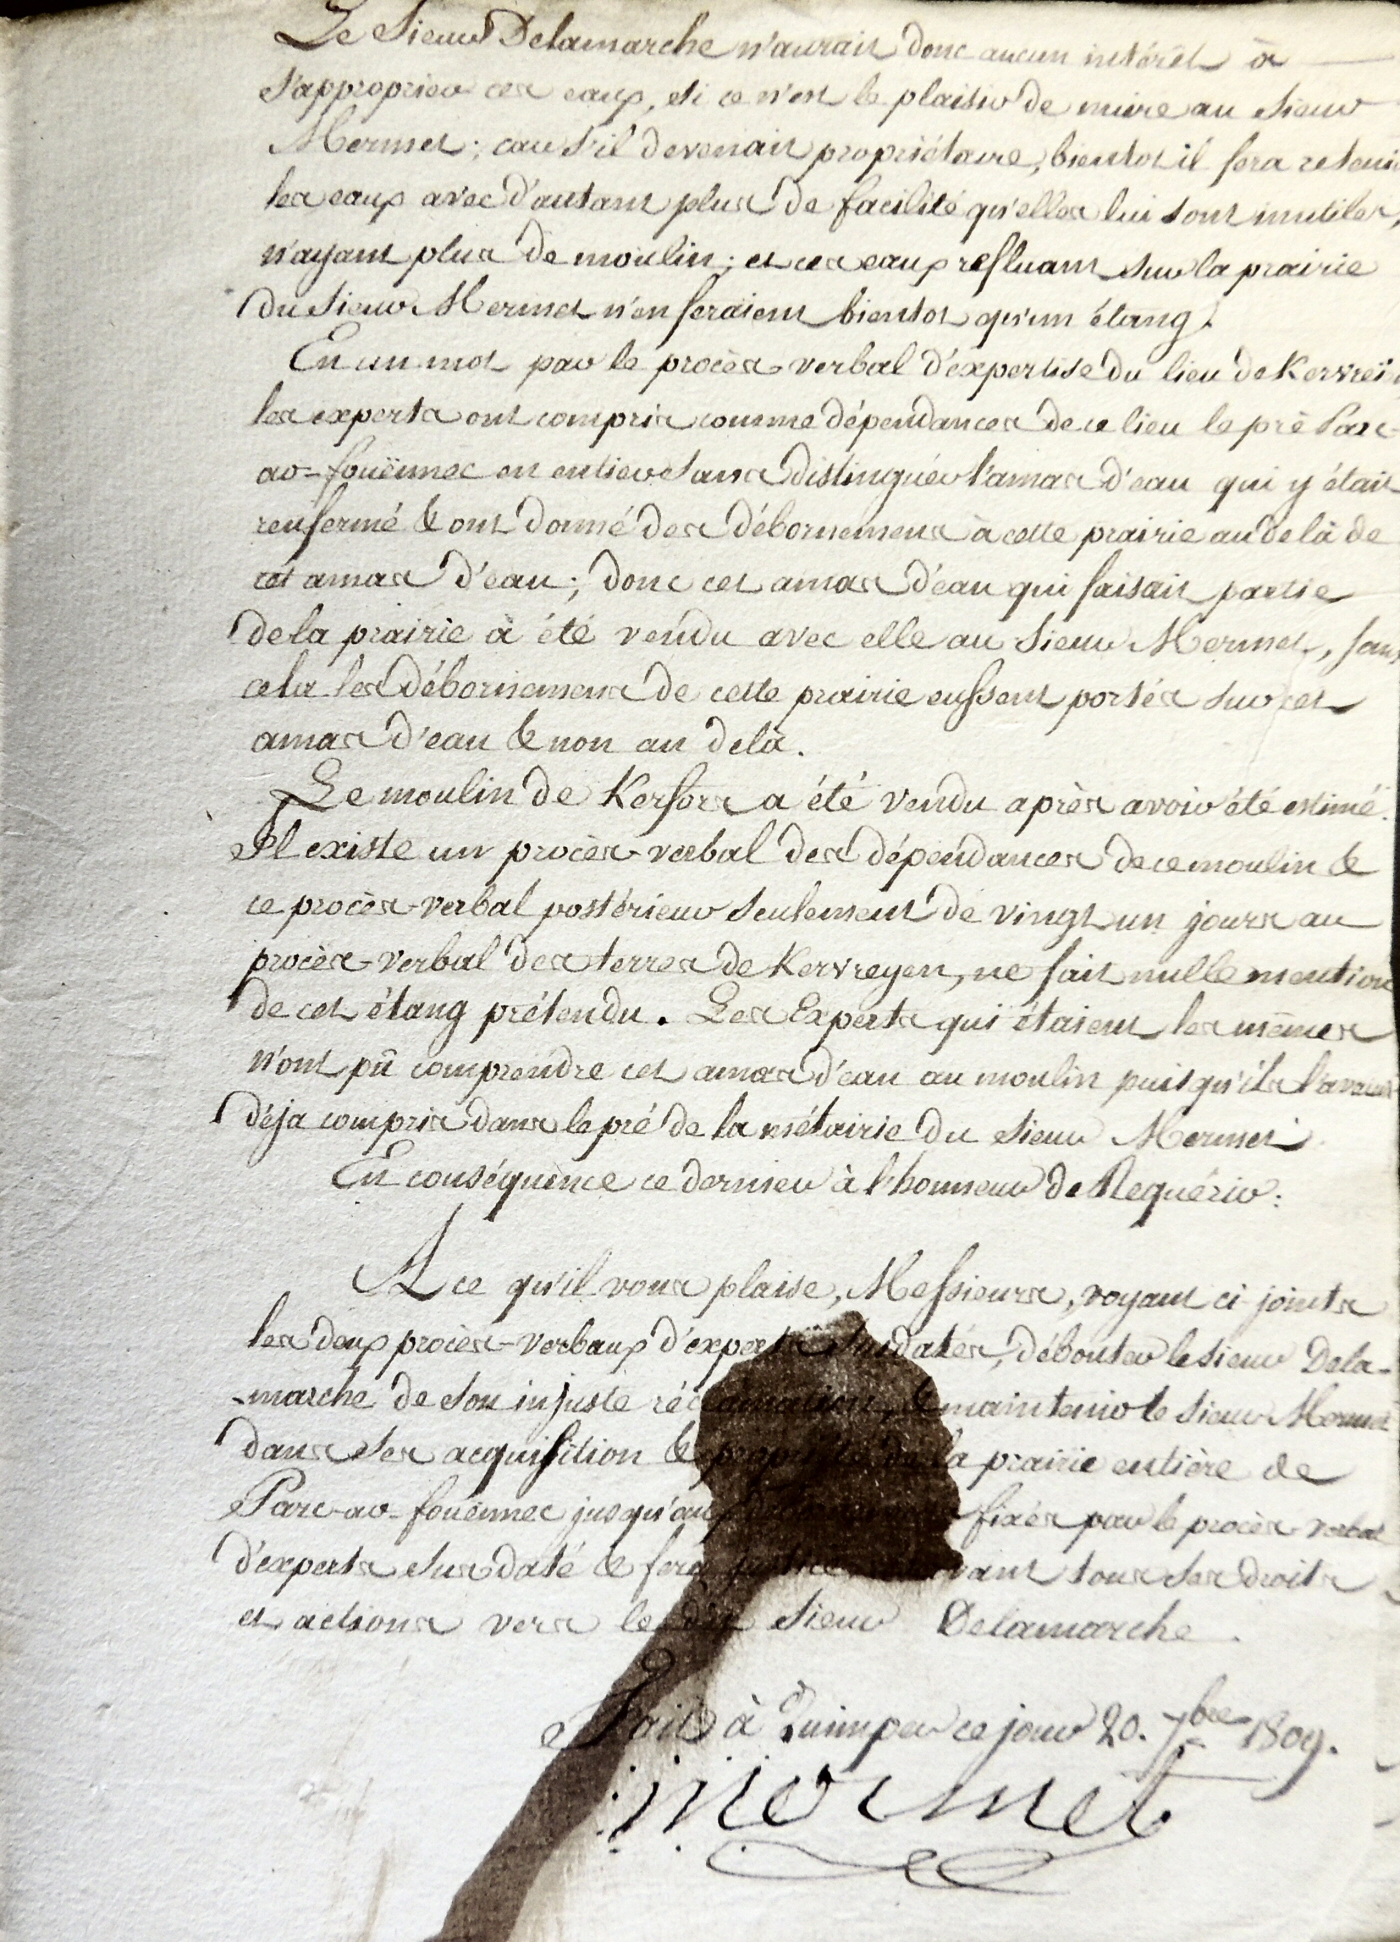 Le Sieur Delamarche n'aurait donc aucun intérêt à
s'approprier ces eaux, si ce n'est le plaisir de nuire au Sieur
Mermet; car s'il devenait propriétaire, bientot il fera retenir
les eaux avec d'autant plus de facilité qu'elles lui sont inutiles,
n'ayant plus de moulin; et ces eaux refluant sur la prairie
du Sieur Mermet n'en feraient bientot qu'un étang.
En un mot par le procès-verbal d'expertise du lieu de
les experts ont compris comme dépendances de ce lieu le pré Parc-
ar-fouënnec en entier sans distinguér l'amas d'eau qui y était
renfermé & ont donné des débornemens à cette prairie au delà de
cet amas d'eau; donc cet amas d'eau qui faisait partie
de la prairie à été vendu avec elle au Sieur Mermet, sans
cela les débornemens de cette prairie eussent portés sur cet
amas d'eau & non au delà.
Le moulin de Kerfors a été vendu après avoir été estimé.
Il existe un procès-verbal des dépendances de ce moulin &
ce procès-verbal postérieur seulement de vingt un jours au
procès-verbal des terres de Kervreyen, ne fait nulle mention
de cet étang prétendu. Les Experts qui étaient les mêmes
n'ont pû comprendre cet amas d'eau au moulin puisqu'ils l'avaient
déja compris dans le pré de la métairie du Sieur Mermet.
En conséquence ce dernier à l'honneur de Requérir:
A ce qu'il vous plaise, Messieurs, voyant ci-joints
les deux procès-verbaux d'experts susdatés, débouter le Sieur Dela-
-marche de son injuste réclamation, & maintenir le Sieur Mermet
dans ses acquisition & propriété de la prairie entière de
Parc-ar-fouënnec jusqu'aux fixés par le procès-verbal
d'experts susdaté & fera justice tous ses droits
et actions vers le dit Sieur Delamarche.
Fait à Quimper ce jour 20. 7bre 1809.
Mermet